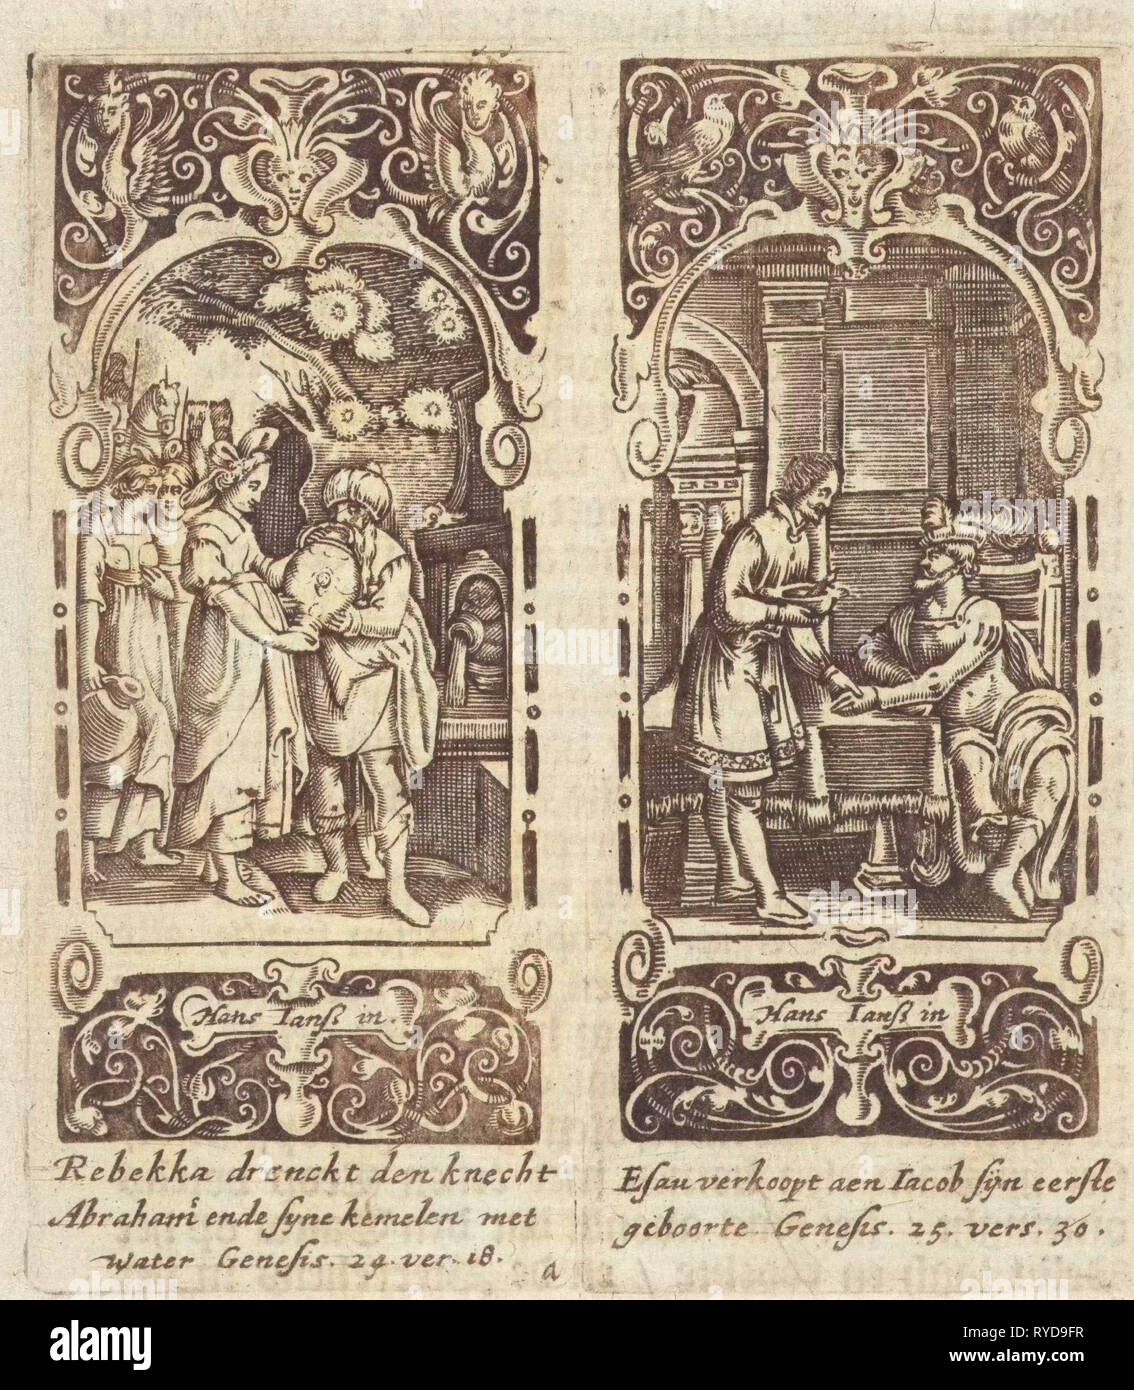 Hans Ianſz in.
Rebekka drenckt den knecht
Abrahams ende ſyne kemelen met
water Geneſis. 24. ver. 18.
a
Hans Ianſz in
Eſau verkoopt aen Iacob ſijn eerſte
geboorte Geneſis. 25. vers. 30.
alamy
Image ID: RYD9FR
www.alamy.com